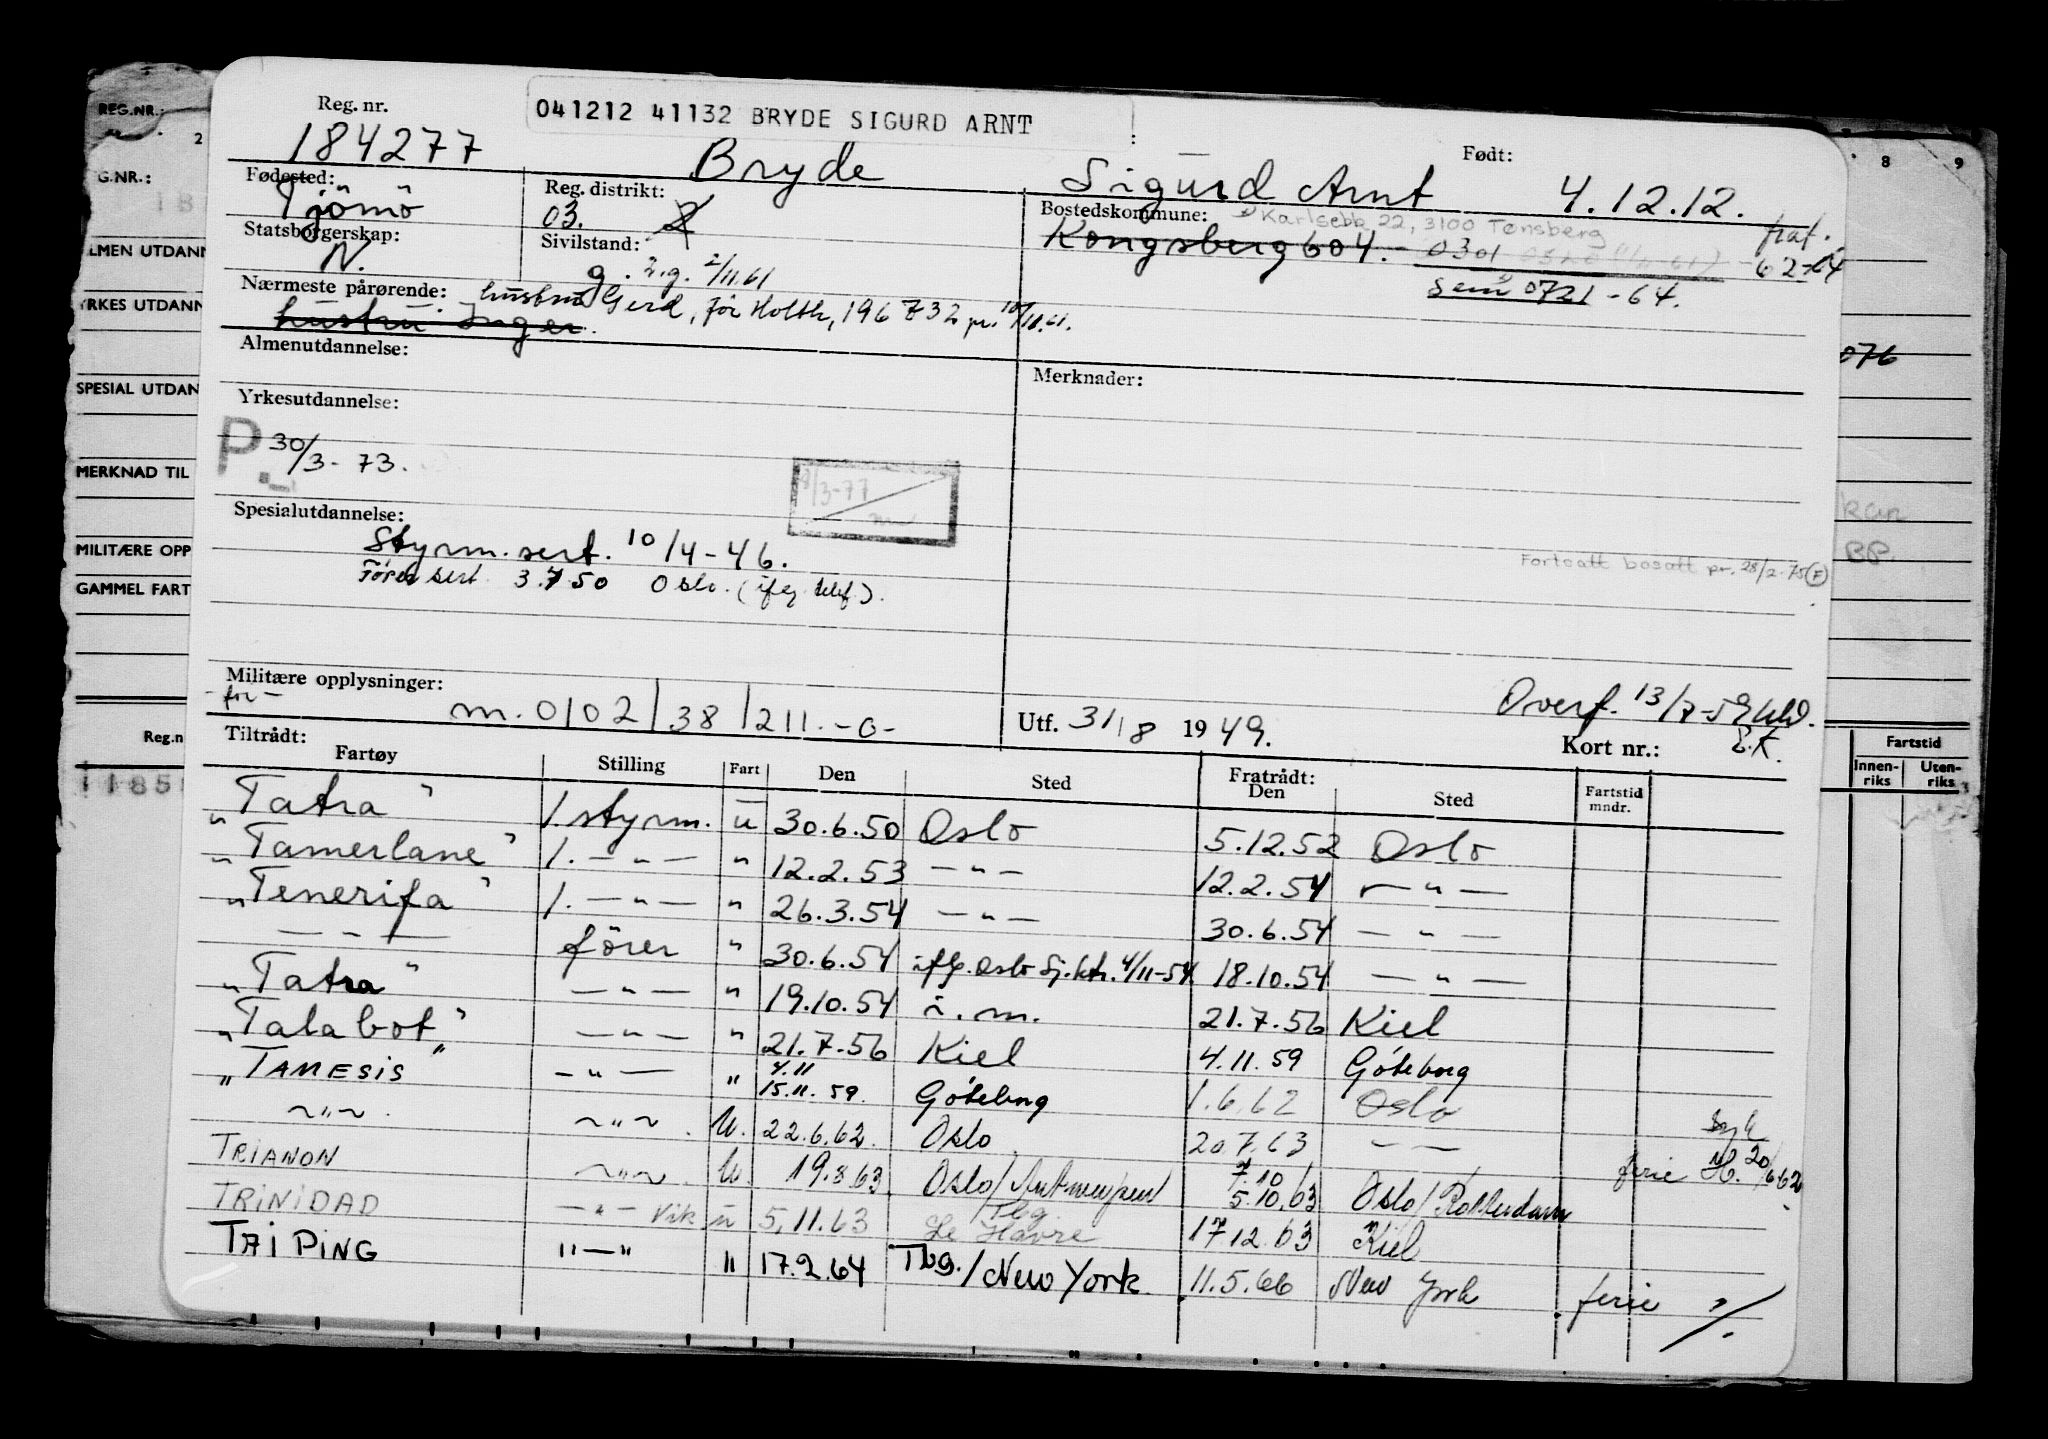 041212 41132 BRYDE SIGURD ARNT
Reg. nr.
184277 Bryde Sigurd Arnt
Født:
4.12.12.
Fødested:
Tjömö
Reg. distrikt:
03.
Bostedskommune:
Karlsebb 22, 3100 Tønsberg
Kongsberg 604. - 0301
fraf. 62-64
Sem 0721 - 64.
Statsborgerskap:
N.
Sivilstand:
g. 2.g. 2/11.61
Nærmeste pårørende: hustru Gerd, før Holth, 196732 pr. 10/11.61.
hustru Inger.
Almenutdannelse:
Merknader:
Yrkesutdannelse:
P. 30/3-73.
8/3-77
Spesialutdannelse:
Styrm. sert. 10/4-46.
Förersert. 3.7.50 Oslo. (iflg. telef).
Fortsatt bosatt pr. 28/2-75 (F)
Militære opplysninger:
- for -
m. 0102/38/211. -0-
Utf. 31/8 1949.
Overf. 13/7-59
Kort nr.:
Tiltrådt:
Fartøy Stilling Fart Den Sted Fratrådt: Den Sted Fartstid mndr.
"Tatra" 1. styrm. u 30.6.50 Oslo 5.12.52 Oslo
"Tamerlane" 1. — " — " 12.2.53 — " — 12.2.54 — " —
"Tenerifa" 1. — " — " 26.3.54 — " — 30.6.54 — " —
— " — förer " 30.6.54 iflg. Oslo Sj.ktr. 4/11-54 18.10.54 — " —
"Tatra" — " — " 19.10.54 i. m. 21.7.56 Kiel
"Talabot" — " — " 21.7.56 Kiel 4.11.59 Göteborg
"TAMESIS" — " — " 4.11 15.11.59. Göteborg 1.6.62 Oslo
— " — . — " — . U. 22.6.62. Oslo 20.7.63 — —
ferie 20/6 62
TRIANON — " — . U. 19.8.63. Oslo/Antwerpen 7.10 5.10.63 Oslo/Rotterdam
TRINIDAD — " — Vik u 5.11.63 Tbg Le Havre 17.12.63 Kiel
TAI PING " — " " 17.2.64 Tbg./New York. 11.5.66 New York ferie
REG.NR.:
2
8 9
G.NR.:
LMEN UTDANN
YRKES UTDANN
SPESIAL UTDAN
MERKNAD TIL
MILITÆRE OPP
GAMMEL FART
Reg.n
1185
076
BP.
Fartstid
Innen-riks
Uten-riks